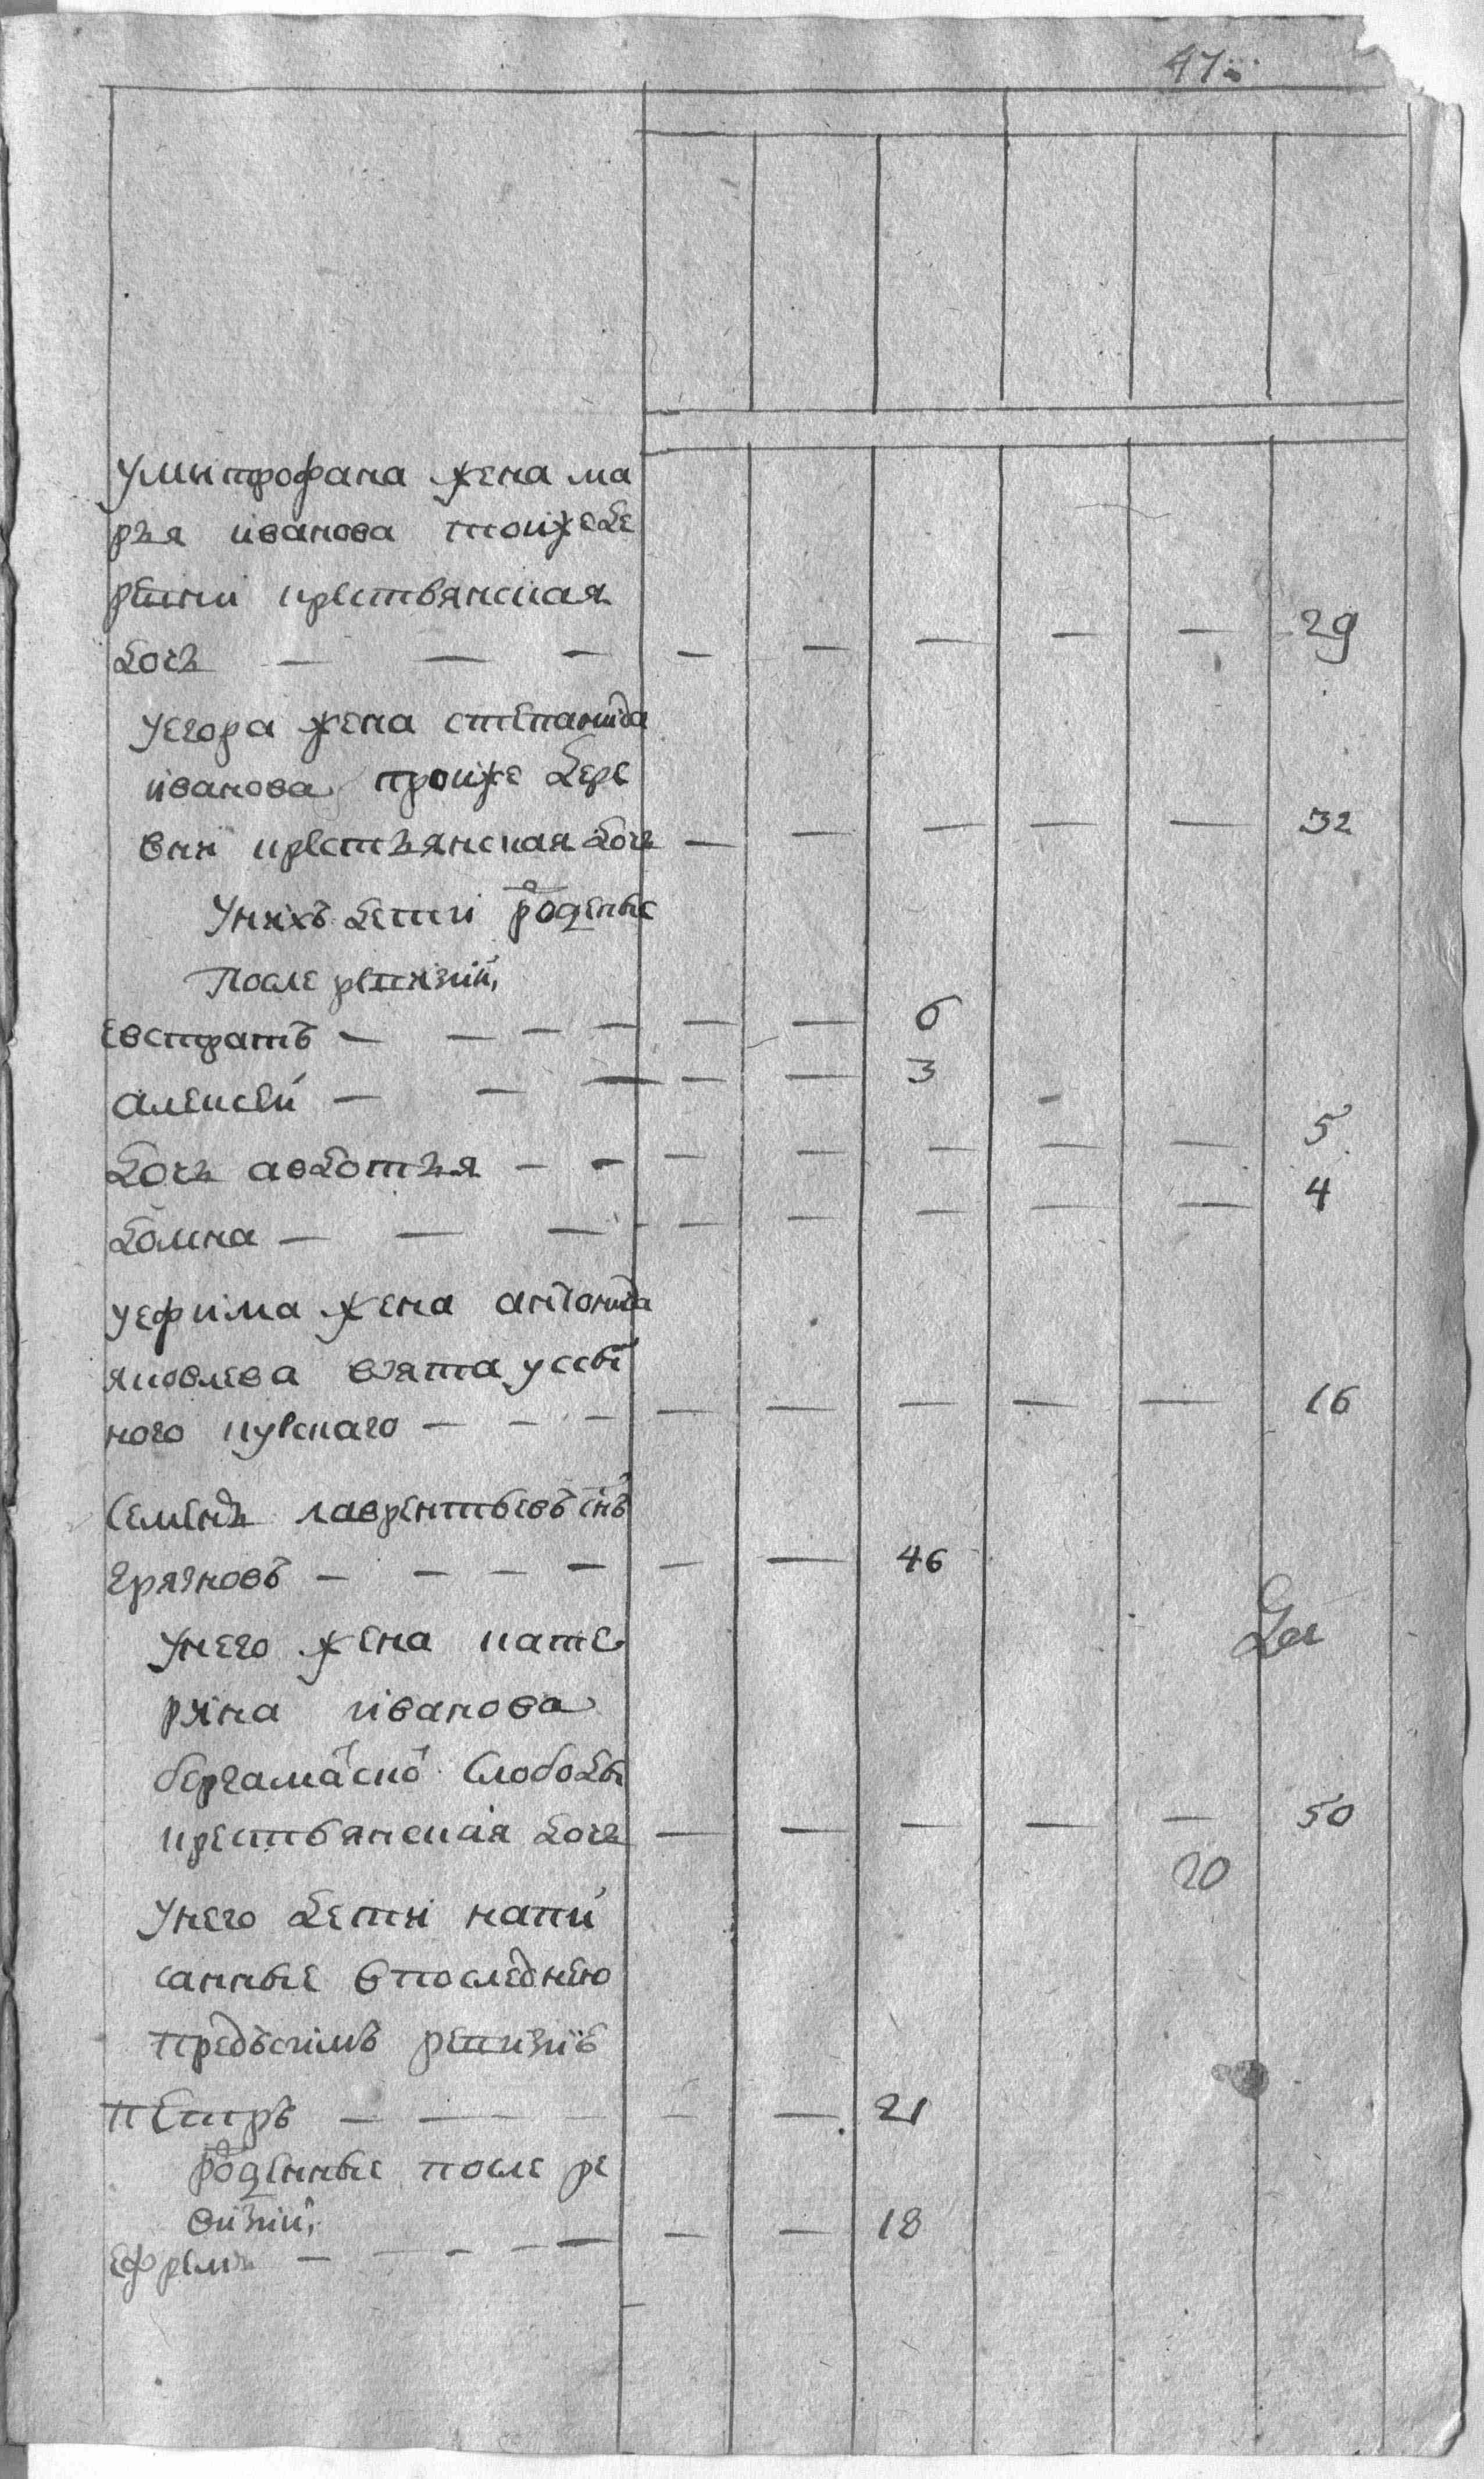 47
Умитрофана жена ма
рья иванова тоижеде
ревни крестьянская
дочь — — — — — — — — 29
Уегора жена степанида
иванова тоиже дере
вни крестьянская дочь — — — — — 32
Унихъ дети рожденые
После ревизии,
Евстратъ — — — — — — 6
алексеи — — — — — 3
дочь авдотья — — — — — — — 5
домна — — — — — — — — 4
уефима жена антонида
яковлева взята уссы
ного кузскаго — — — — — — — — 16
Семенъ лаврентьевъ снъ
грязновъ — — — — — — 46
Унего жена кате
рина иванова
бергамаской слободы
крестьянская дочь — — — — — 50
20
Унего дети напи
санные впоследнею
предъсимъ ревизие
Петръ — — — — 21
рожденные после ре
визии,
ефремъ — — — — — — — 18